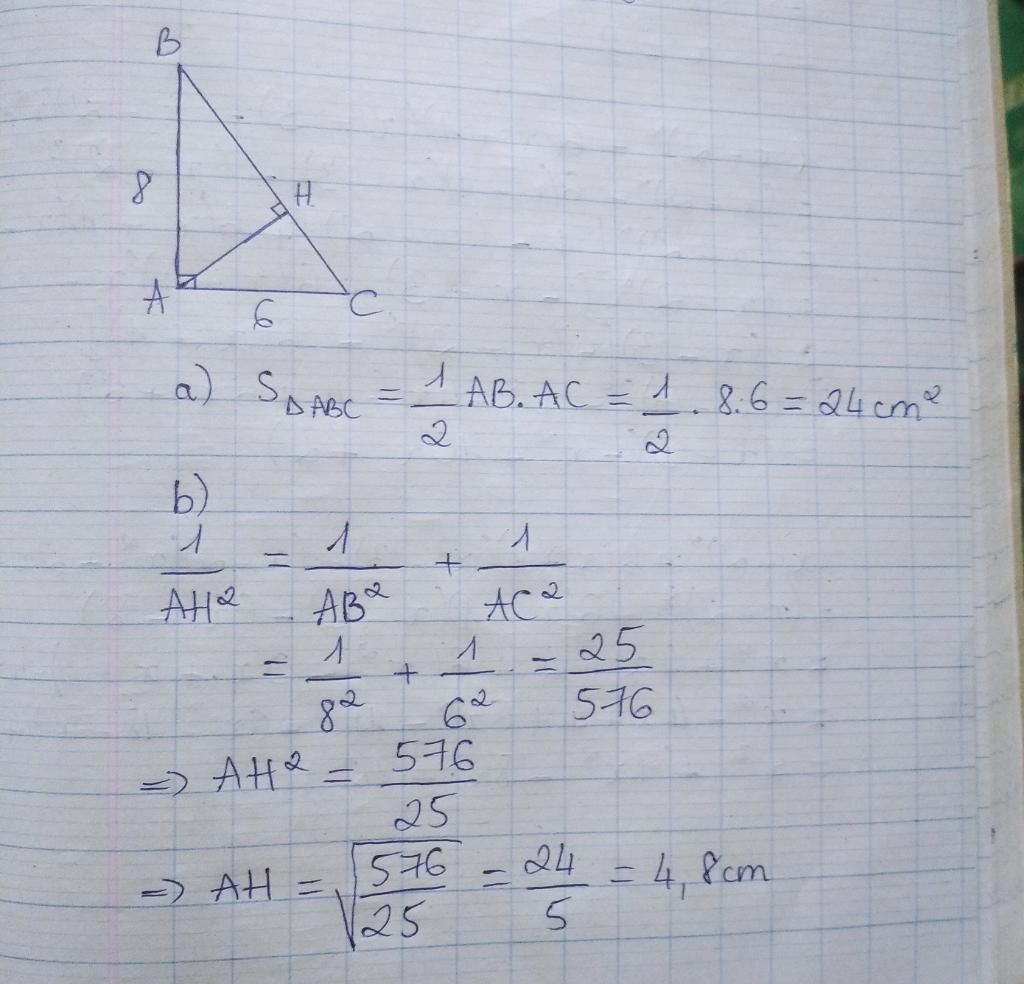 B
8
H
A
6
C
a) S_ΔABC = 1/2 AB.AC = 1/2 . 8.6 = 24 cm²
b)
1/AH² = 1/AB² + 1/AC²
= 1/8² + 1/6² = 25/576
=> AH² = 576/25
=> AH = √(576/25) = 24/5 = 4,8cm